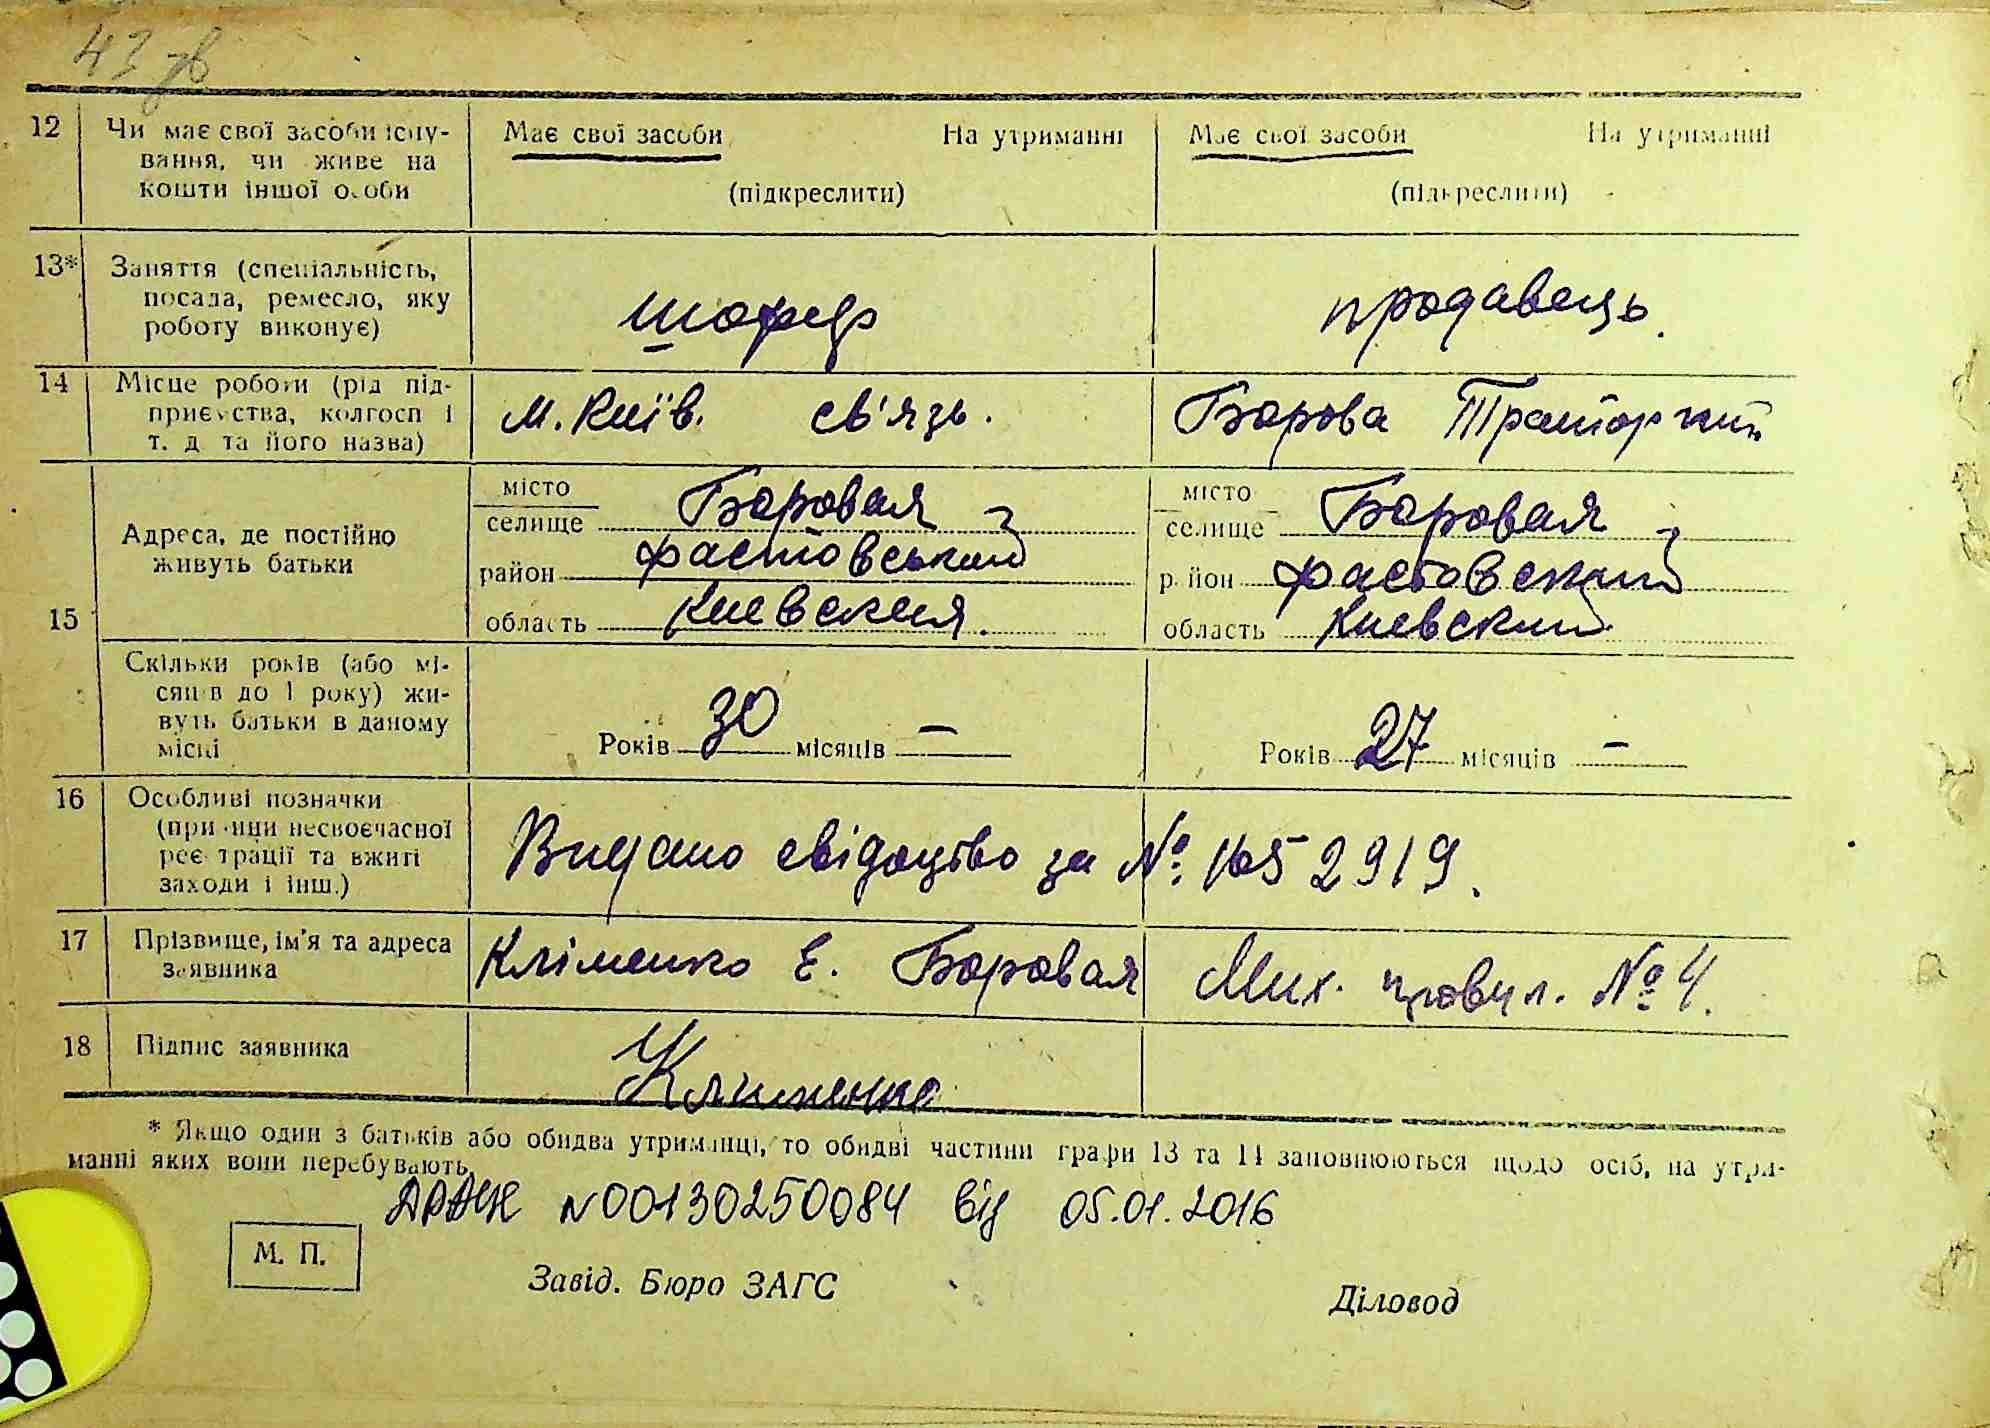 43 зв
12 Чи має свої засоби існу-
вання, чи живе на
кошти іншої особи
Має свої засоби На утриманні
(підкреслити)
Має свої засоби На утриманні
(підкреслити)
13* Заняття (спеціальність,
посада, ремесло, яку
роботу виконує)
шофер
продавець
14 Місце роботи (рід під-
приємства, колгосп і
т. д та його назва)
м. Київ. св'язь.
Борова
15 Адреса, де постійно
живуть батьки
місто
селище Боровая
район фастовський
область Киевская.
місто
селище Боровая
район фастовский
область Киевский
Скільки років (або мі-
сяців до 1 року) жи-
вуть батьки в даному
місці
Років 30 місяців —
Років 27 місяців —
16 Особливі позначки
(причини несвоєчасної
реєстрації та вжиті
заходи і інш.)
Видано свідоцтво за №: 1652919.
17 Прізвище, ім'я та адреса
заявника
Кліменко Е. Боровая Мих. провул. № 4.
18 Підпис заявника
Клименко
* Якщо один з батьків або обидва утриманці, то обидві частини графи 13 та 14 заповнюються щодо осіб, на утри-
манні яких вони перебувають.
ДРАЦС N00130250084 від 05.01.2016
М. П.
Завід. Бюро ЗАГС
Діловод